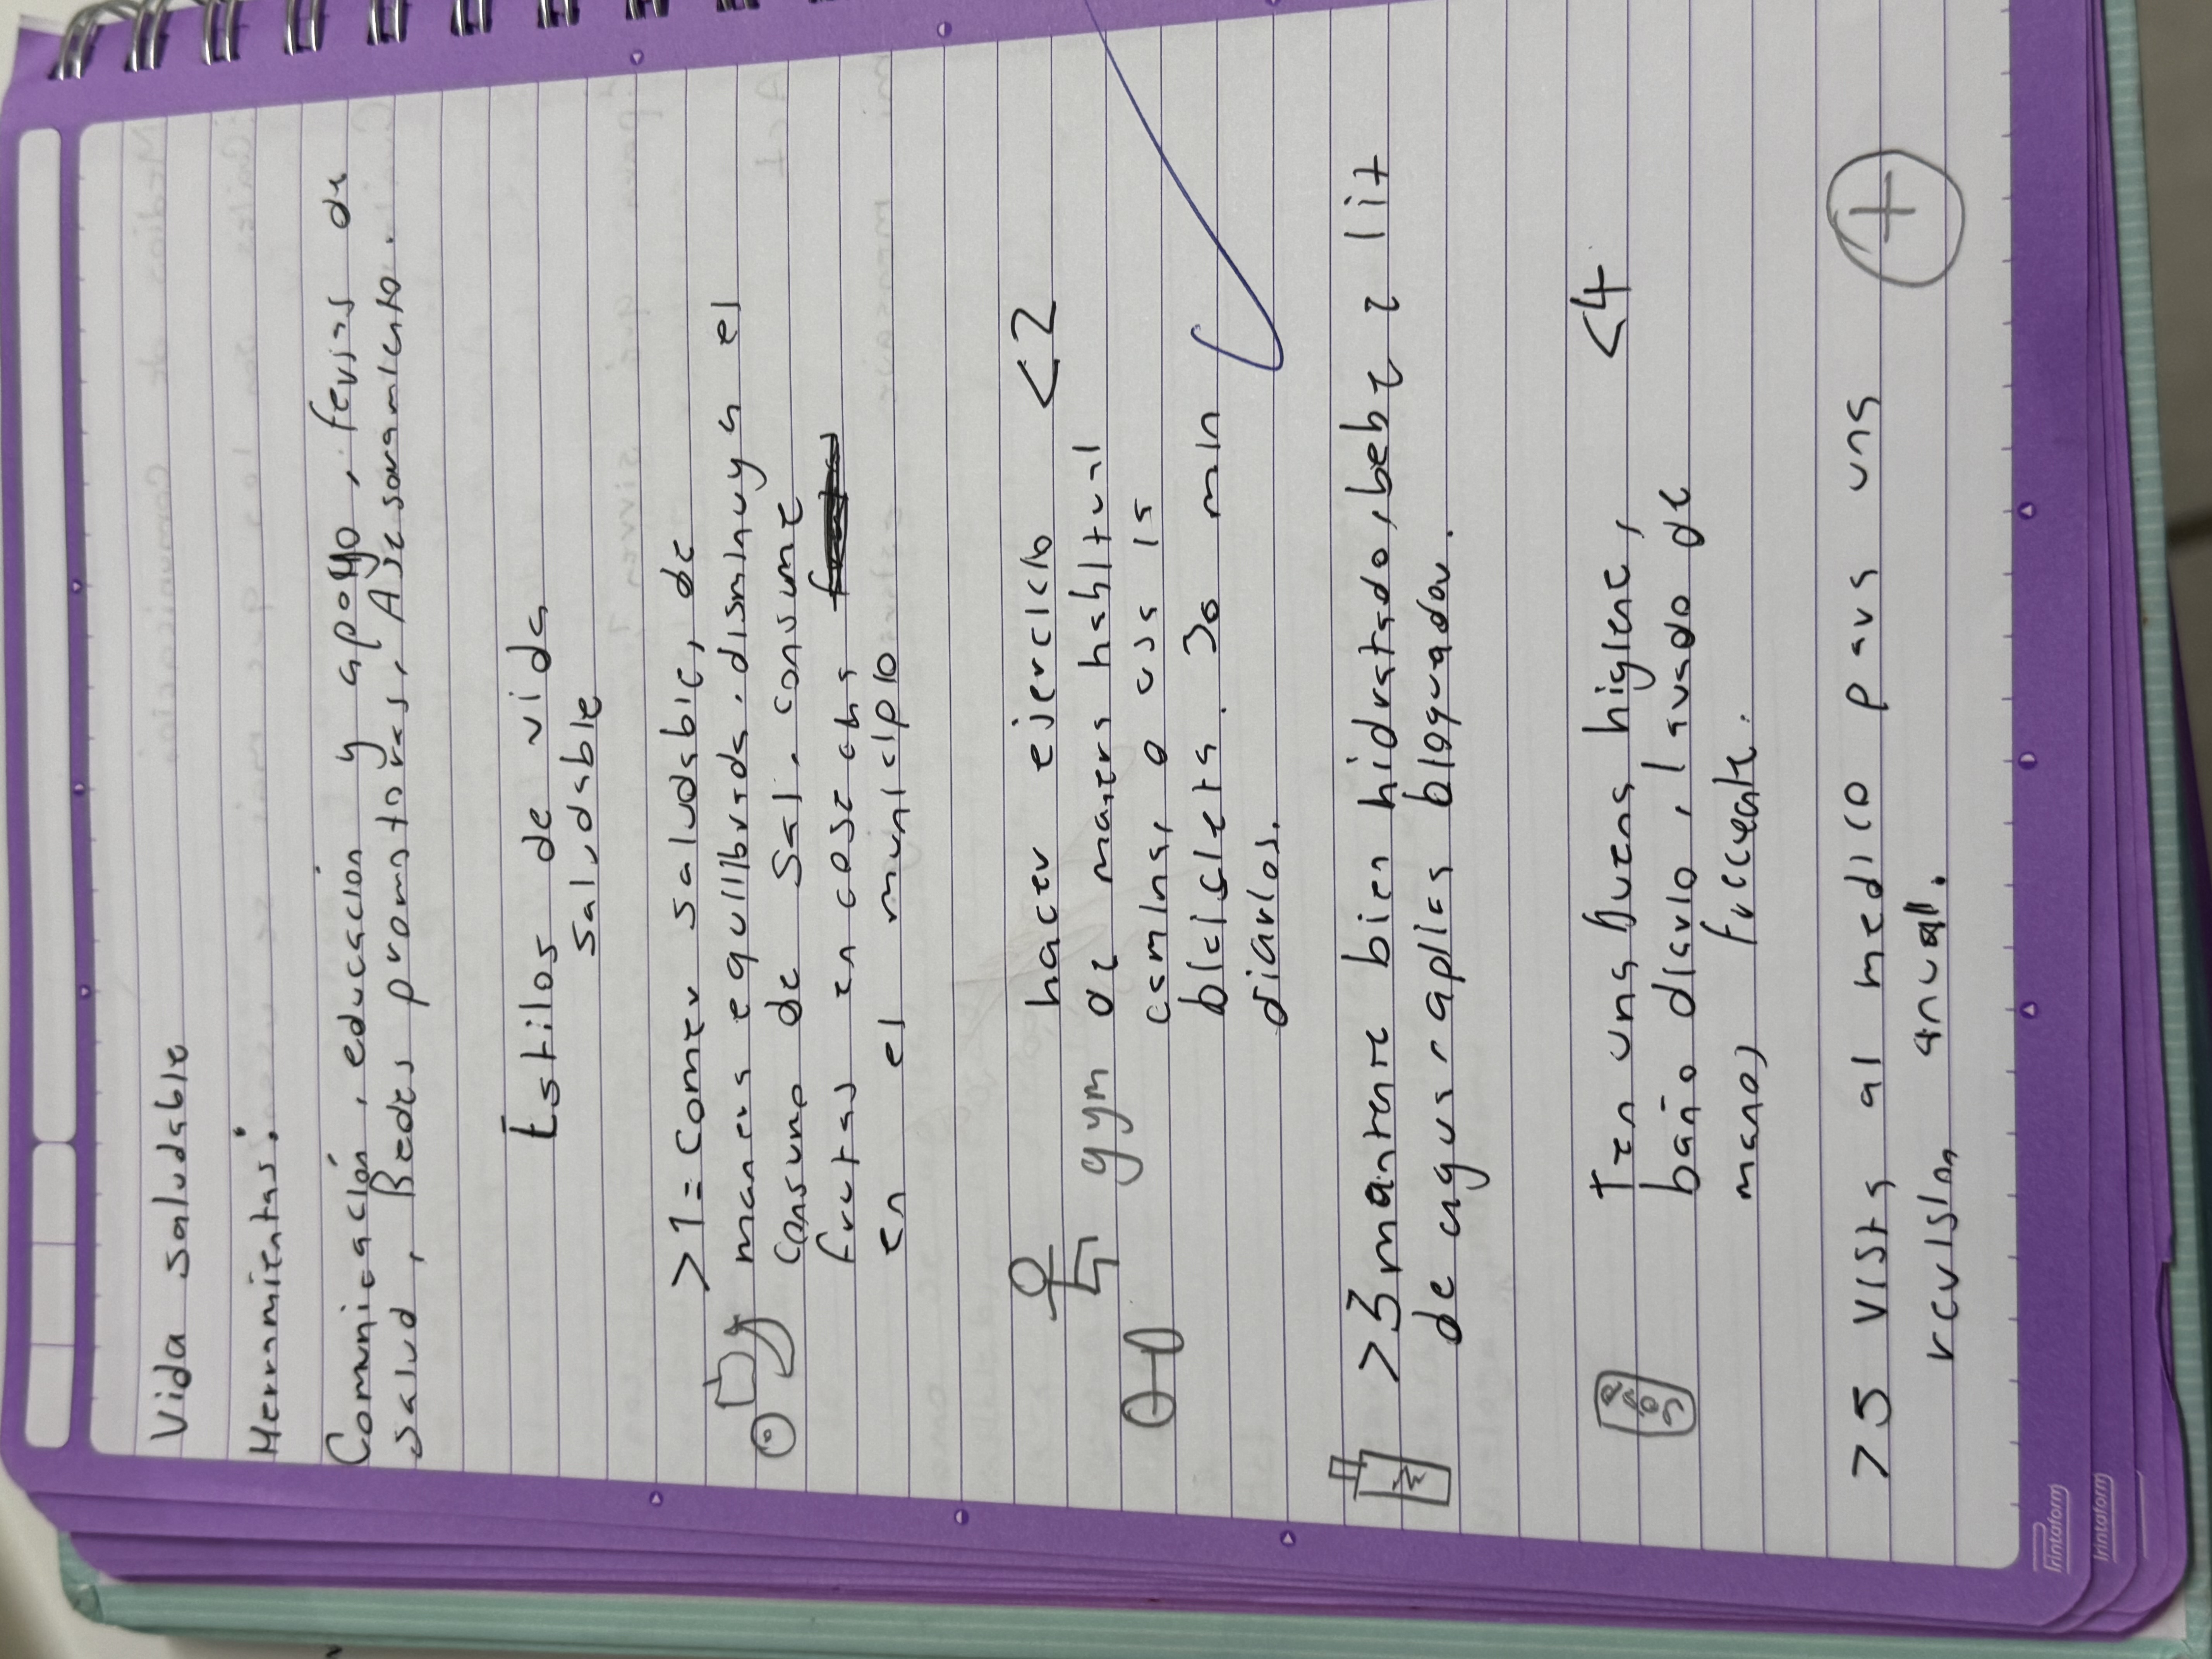 Vida saludable
Herramientas:
Comunicación, educación y apoyo, ferias de
salud, Redes promotoras, Asesoramiento.
Estilos de vida
saludable
>1= Comer saludable, de
manera equilibrada. disminuya el
Consumo de sal. consume
frutas en cosecha
en el municipio
hacer ejercicio <2
gym de manera habitual
camina, o usa la
bicicleta. 30 min
diarios.
>3 mantente bien hidratado, bebe 2 lit
de agua, aplica bloqueador.
Ten una buena higiene, <4
baño diario, lavado de
manos frecuente.
>5 Visita al medico para una +
revisión anual.
Printaform
Printaform